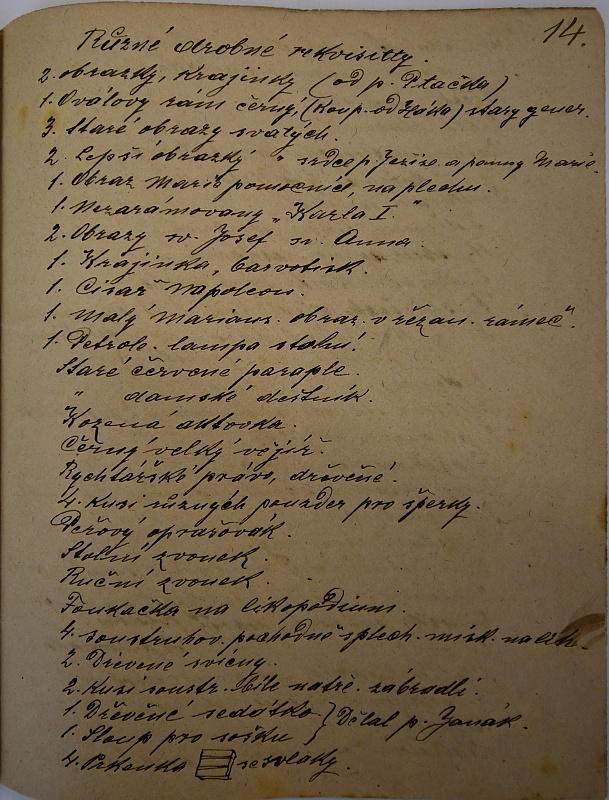 14.
Různé drobné rekvisitty.
2. obrazky, Krajinky (od p. Ptačka)
1. Oválovy rám černý, (Koup. od Háka) stary gener.
3. Staré obrazy svatých.
2. Lepší obrazky " srdce p. Ježíše a panny Marie.
1. Obraz Marie pomocnice, na plechu.
1. Nezarámovany „Karla I."
2. Obrazy sv. Josef sv. Anna.
1. Krajinka, barvotisk.
1. Cisař Napoleon.
1. Malý Marians. obraz. v řezan. rámeč.
1. Petrole. lampa stolní.
Staré červené paraple.
" damské deštník.
Kožená aktovka.
Černý velký vějíř.
Rychtářské právo, dřevěné.
4. Kusi různých pouzder pro šperky.
Peřový oprašovák.
Stolní zvonek.
Ruční zvonek.
Foukačka na likopodium.
4. soustruhov. pochodně s plech. misk. na
2. Dřevené svícny.
2. Kusi soustr. bíle natře. zábradlí.
1. Dřevěné sedátko } Dělal p. Janák.
1. Sloup pro sošku
4. Prkenka se svlaky.